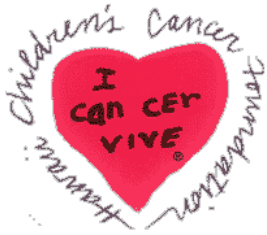 Hawaii Children's Cancer Foundation
I
can cer
vive®